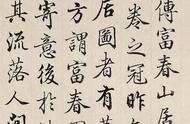 傳富春山居
卷之冠昨
居圖者有
方謂富春
寄意後於
其流落人間